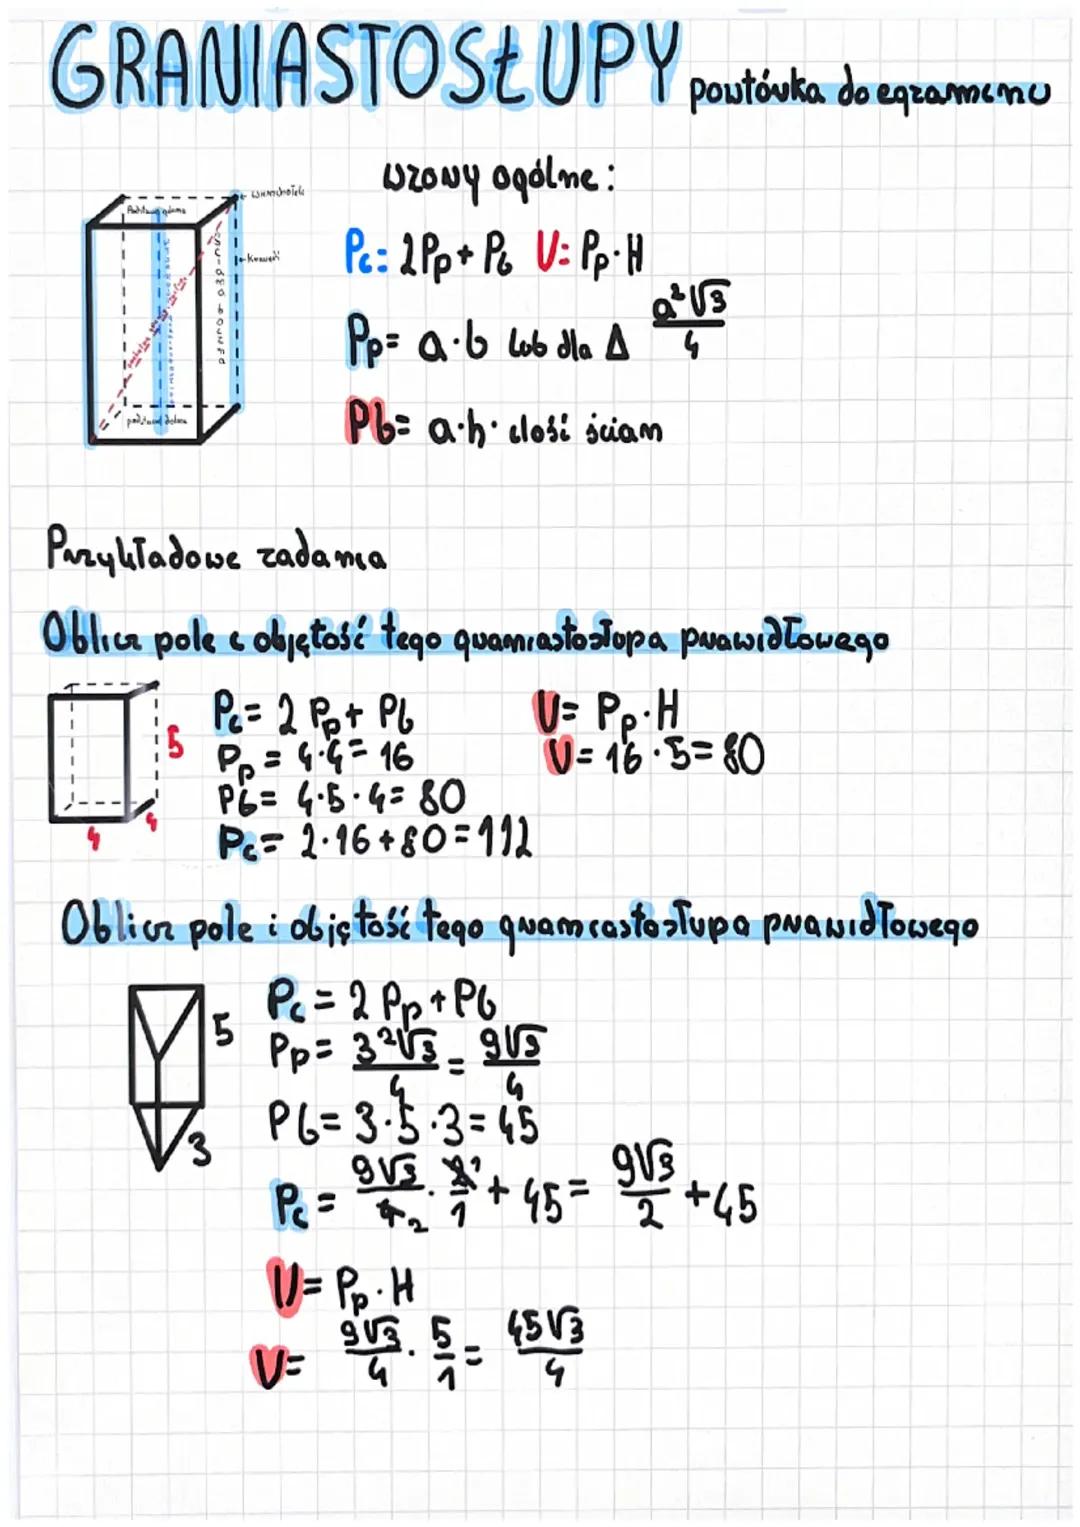 GRANIASTOSŁUPY powtórka do egzaminu
wzory ogólne:
wierzchołek
Podstawa górna
Krawędź
ściana boczna
podstawa dolna
Pc= 2Pp + Pb V= Pp·H
Pp= a·b lub dla Δ a²√3/4
Pb= a·h· ilość ścian
Przykładowe zadania
Oblicz pole i objętość tego graniastosłupa prawidłowego
5
4
4
Pc= 2 Pp + Pb
Pp = 4·4= 16
Pb= 4·5·4= 80
Pc= 2·16+80=112
V= Pp·H
V= 16·5=80
Oblicz pole i objętość tego graniastosłupa prawidłowego
5
3
Pc = 2 Pp + Pb
Pp= 3²√3/4 = 9√3/4
Pb= 3·5·3=45
Pc = 9√3/4 2 · 2 1/1 + 45= 9√3/2 +45
V= Pp·H
V= 9√3/4 · 5/1 = 45√3/4